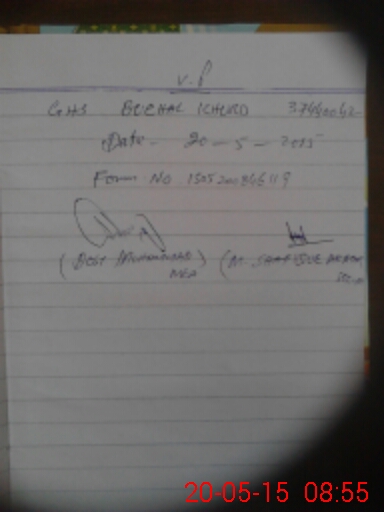 V.P
GHS BUCHAL KHURD 37440042
Date - 20 - 5 - 2015
Form No 1505200846119
(Dost Muhammad) (M.
MEA
20-05-15 08:55